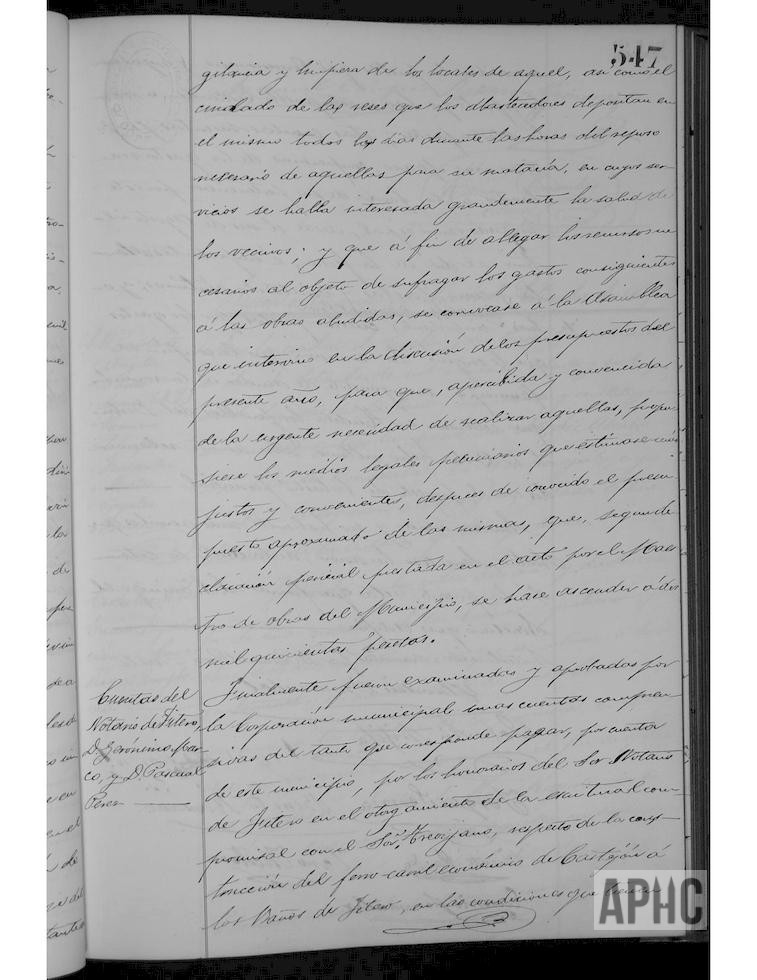 547
gilancia y limpieza de los locales de aquel, asi como el
cuidado de las reses que los abastecedores depositan en
el mismo todos los dias durante las horas del reposo
necesario de aquellas para su matanza, en cuyos ser-
vicios se halla interesada grandemente la salud de
los vecinos; y que á fin de allegar los recursos ne
cesarios al objeto de sufragar los gastos consiguientes
á las obras aludidas, se convocase á la Asamblea
que intervino en la discusión de los presupuestos del
presente año, para que, apercibida y convencida
de la urgente necesidad de realizar aquellas, propu-
siese los medios legales pecuniarios que estimase mas
justos y convenientes, despues de conocido el presu-
puesto aproximado de las mismas, que, segun de
claración pericial prestada en el acto por el Maes
tro de obras del Municipio, se hace ascender á dos
mil quinientas pesetas.
Cuentas del
Notario de Fitero,
D. Geronimo
co, y D. Pascual
Perez
Finalmente fueron examinadas y aprobadas por
la Corporación municipal unas cuentas compren
sivas del tanto que corresponde pagar, por cuenta
de este municipio, por los honorarios del Sor. Notario
de Fitero en el otorgamiento de la escritura com-
promisal con el Sor. respecto de la cons-
trucción del ferro-carril económico de Castejón á
los Baños de Fitero, en las condiciones que
APHC